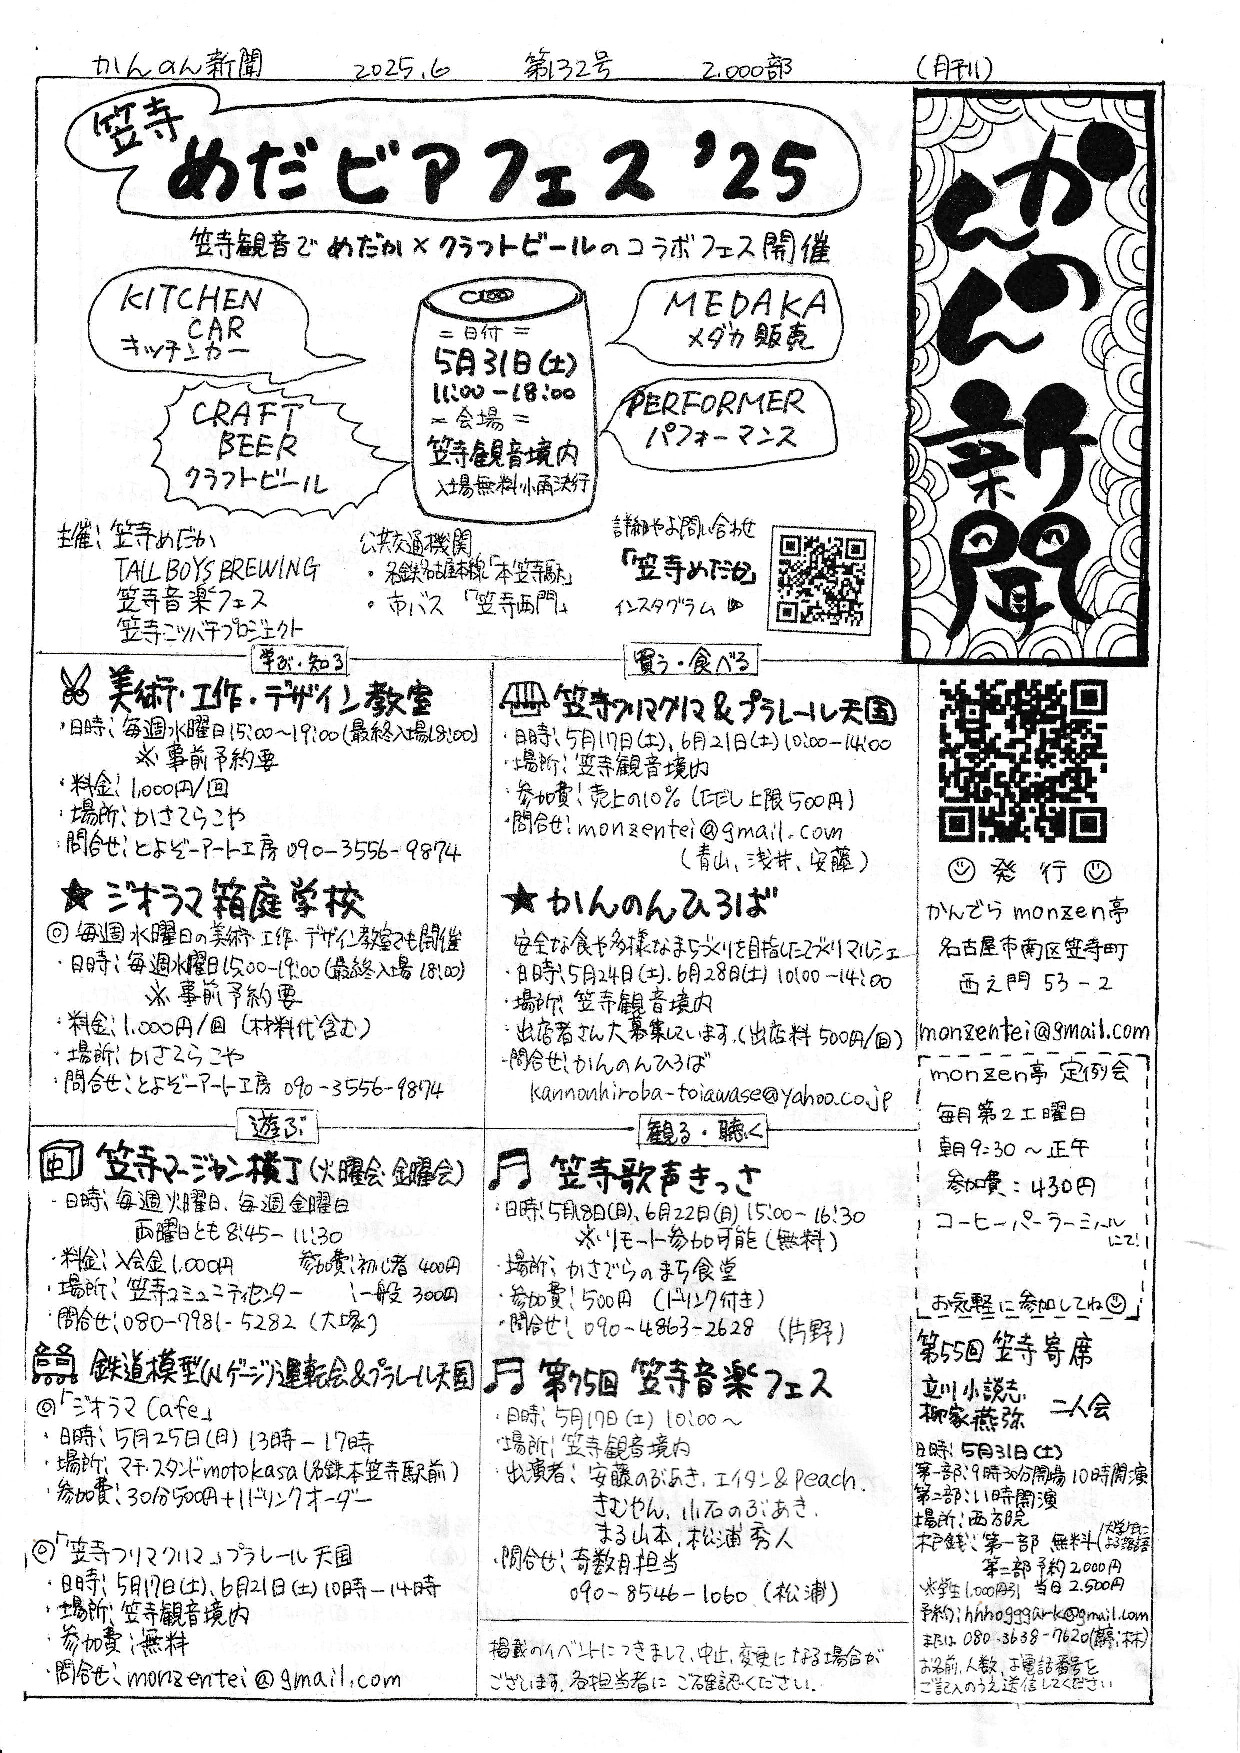 かんのん新聞 2025.6 第132号 2,000部 (月刊)
かんのん新聞
笠寺
めだビアフェス '25
笠寺観音でめだか×クラフトビールのコラボフェス開催
KITCHEN
CAR
キッチンカー
CRAFT
BEER
クラフトビール
=日付=
5月31日(土)
11:00-18:00
=会場=
笠寺観音境内
入場無料小雨決行
MEDAKA
メダカ販売
PERFORMER
パフォーマンス
主催:笠寺めだか
TALL BOYS BREWING
笠寺音楽フェス
笠寺ミツバチプロジェクト
公共交通機関
・名鉄名古屋本線「本笠寺駅」
・市バス「笠寺西門」
詳細やお問い合わせ
「笠寺めだか」
インスタグラム
学ぶ・知る
美術・工作・デザイン教室
・日時:毎週水曜日15:00〜19:00(最終入場18:00)
※事前予約要
・料金:1,000円/回
・場所:かさてらこや
・問合せ:とよぞーアート工房 090-3556-9874
★ジオラマ箱庭学校
◎毎週水曜日の美術・工作・デザイン教室でも開催
・日時:毎週水曜日15:00-19:00(最終入場18:00)
※事前予約要
・料金:1,000円/回(材料代含む)
・場所:かさてらこや
・問合せ:とよぞーアート工房 090-3556-9874
買う・食べる
笠寺フリマクリマ&プラレール天国
・日時:5月17日(土)、6月21日(土)10:00-14:00
・場所:笠寺観音境内
・参加費:売上の10%(ただし上限500円)
・問合せ:monzentei@gmail.com
(青山、浅井、安藤)
★かんのんひろば
安全な食や多様なまちづくりを目指した手づくりマルシェ
・日時:5月24日(土)、6月28日(土)10:00-14:00
・場所:笠寺観音境内
・出店者さん大募集しています。(出店料500円/回)
・問合せ:かんのんひろば
kannonhiroba-toiawase@yahoo.co.jp
遊ぶ
笠寺マージャン横丁(火曜会・金曜会)
・日時:毎週火曜日、毎週金曜日
両曜日とも8:45-11:30
・料金:入会金1,000円 参加費:初心者400円
・場所:笠寺コミュニティセンター :一般300円
・問合せ:080-7981-5282(大塚)
鉄道模型(Nゲージ)運転会&プラレール天国
◎「ジオラマCafe」
・日時:5月25日(月)13時-17時
・場所:マチ・スタンドmotokasa(名鉄本笠寺駅前)
・参加費:30分500円+1ドリンクオーダー
◎「笠寺フリマクリマ」プラレール天国
・日時:5月17日(土)、6月21日(土)10時-14時
・場所:笠寺観音境内
・参加費:無料
・問合せ:monzentei@gmail.com
観る・聴く
笠寺歌声きっさ
・日時:5月18日(月)、6月22日(月)15:00-16:30
※リモート参加可能(無料)
・場所:かさでらのまち食堂
・参加費:500円(ドリンク付き)
・問合せ:090-4863-2628(片野)
第75回 笠寺音楽フェス
・日時:5月17日(土)10:00〜
・場所:笠寺観音境内
・出演者:安藤のぶあき、エイタン&Peach、
きむやん、小石のぶあき、
まる山本、松浦秀人
・問合せ:奇数月担当
090-8546-1060(松浦)
掲載のイベントにつきまして、中止、変更になる場合が
ございます。各担当者にご確認ください。
発行
かんでらmonzen亭
名古屋市南区笠寺町
西之門53-2
monzentei@gmail.com
monzen亭 定例会
毎月第2土曜日
朝9:30〜正午
参加費:430円
コーヒーパーラーミハル
にて!
お気軽に参加してね
第55回 笠寺寄席
立川小説志
柳家燕弥 二人会
日時:5月31日(土)
第一部:9時30分開場10時開演
第二部:11時開演
場所:西方院
木戸銭:第一部 無料
第二部 予約2,000円
※学生1,000円引 当日2,500円
予約:hhhogggark@gmail.com
または080-3638-7620
お名前、人数、お電話番号を
ご記入のうえ送信してください